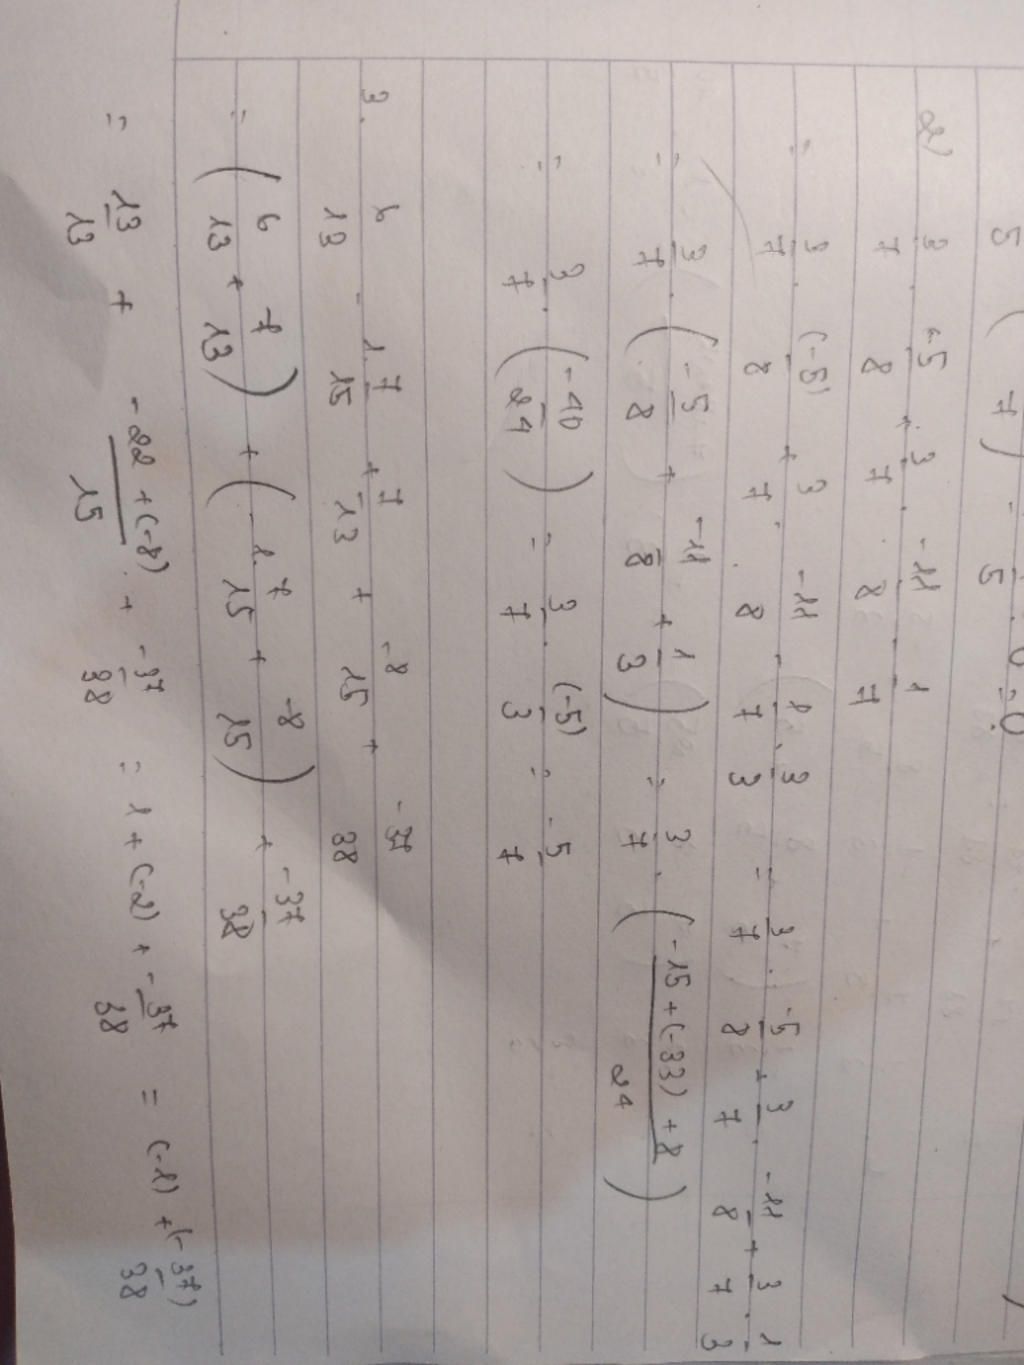 2) 3/7 . -5/8 + 3/7 . -11/8 . 1/7
= 3/7 . (-5)/8 + 3/7 . -11/8 . 1/7 . 3/3 = 3/7 . -5/8 + 3/7 . -11/8 + 3/7 . 1/3
= 3/7 . (-5/8 + -11/8 + 1/3) = 3/7 . (-15+(-33)+8/24)
= 3/7 . (-40/24) = 3/7 . (-5)/3 = -5/7
3. 6/13 - 1. 7/15 + 7/13 + -8/15 + -37/38
= (6/13 + 7/13) + (-1. 7/15 + -8/15) + -37/38
= 13/13 + -22+(-8)/15 + -37/38 = 1+(-2)+ -37/38 = (-1)+(-37/38)